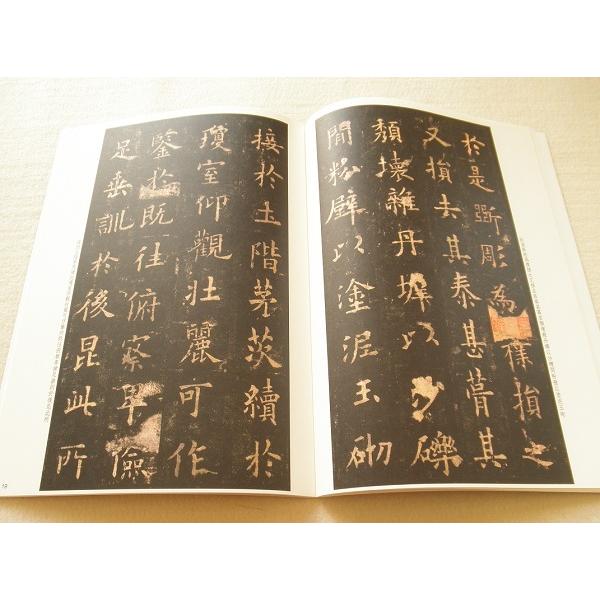 於是斲彫為樸損之
又損去其泰甚葺其
頹壞雜丹墀以沙礫
閒粉壁以塗泥玉砌
接於土階茅茨續於
瓊室仰觀壯麗可作
鑒於既往俯察卑儉
足垂訓於後昆此所